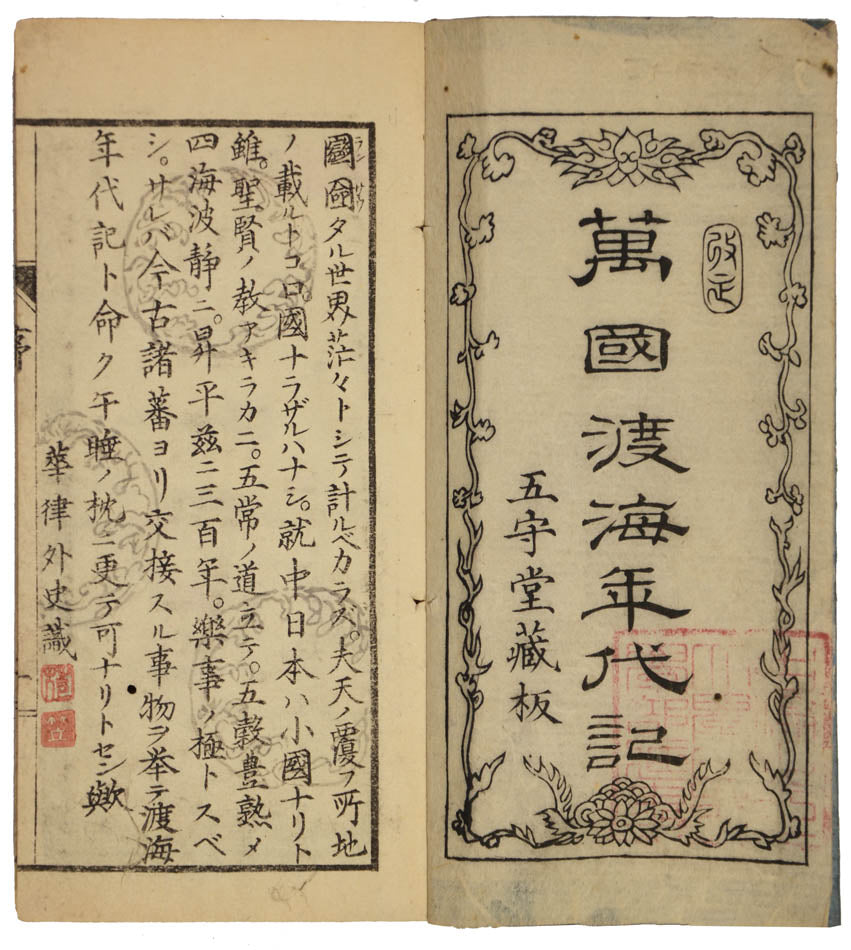 改正
萬國渡海年代記
五守堂藏板
タル世界茫々トシテ計ルベカラズ。夫天ノ覆フ所地
ノ載ルトコロ。國ナラザルハナシ。就中日本ハ小國ナリト
雖。聖賢ノ教アキラカニ。五常ノ道立テ。五穀豊熟メ
四海波静ニ。昇平茲ニ三百年。樂事ノ極トスベ
シ。サレバ今古諸蕃ヨリ交接スル事物ヲ挙テ渡海
年代記ト命ク午睡ノ枕ニ更テ可ナリトセン歟
華律外史識
序